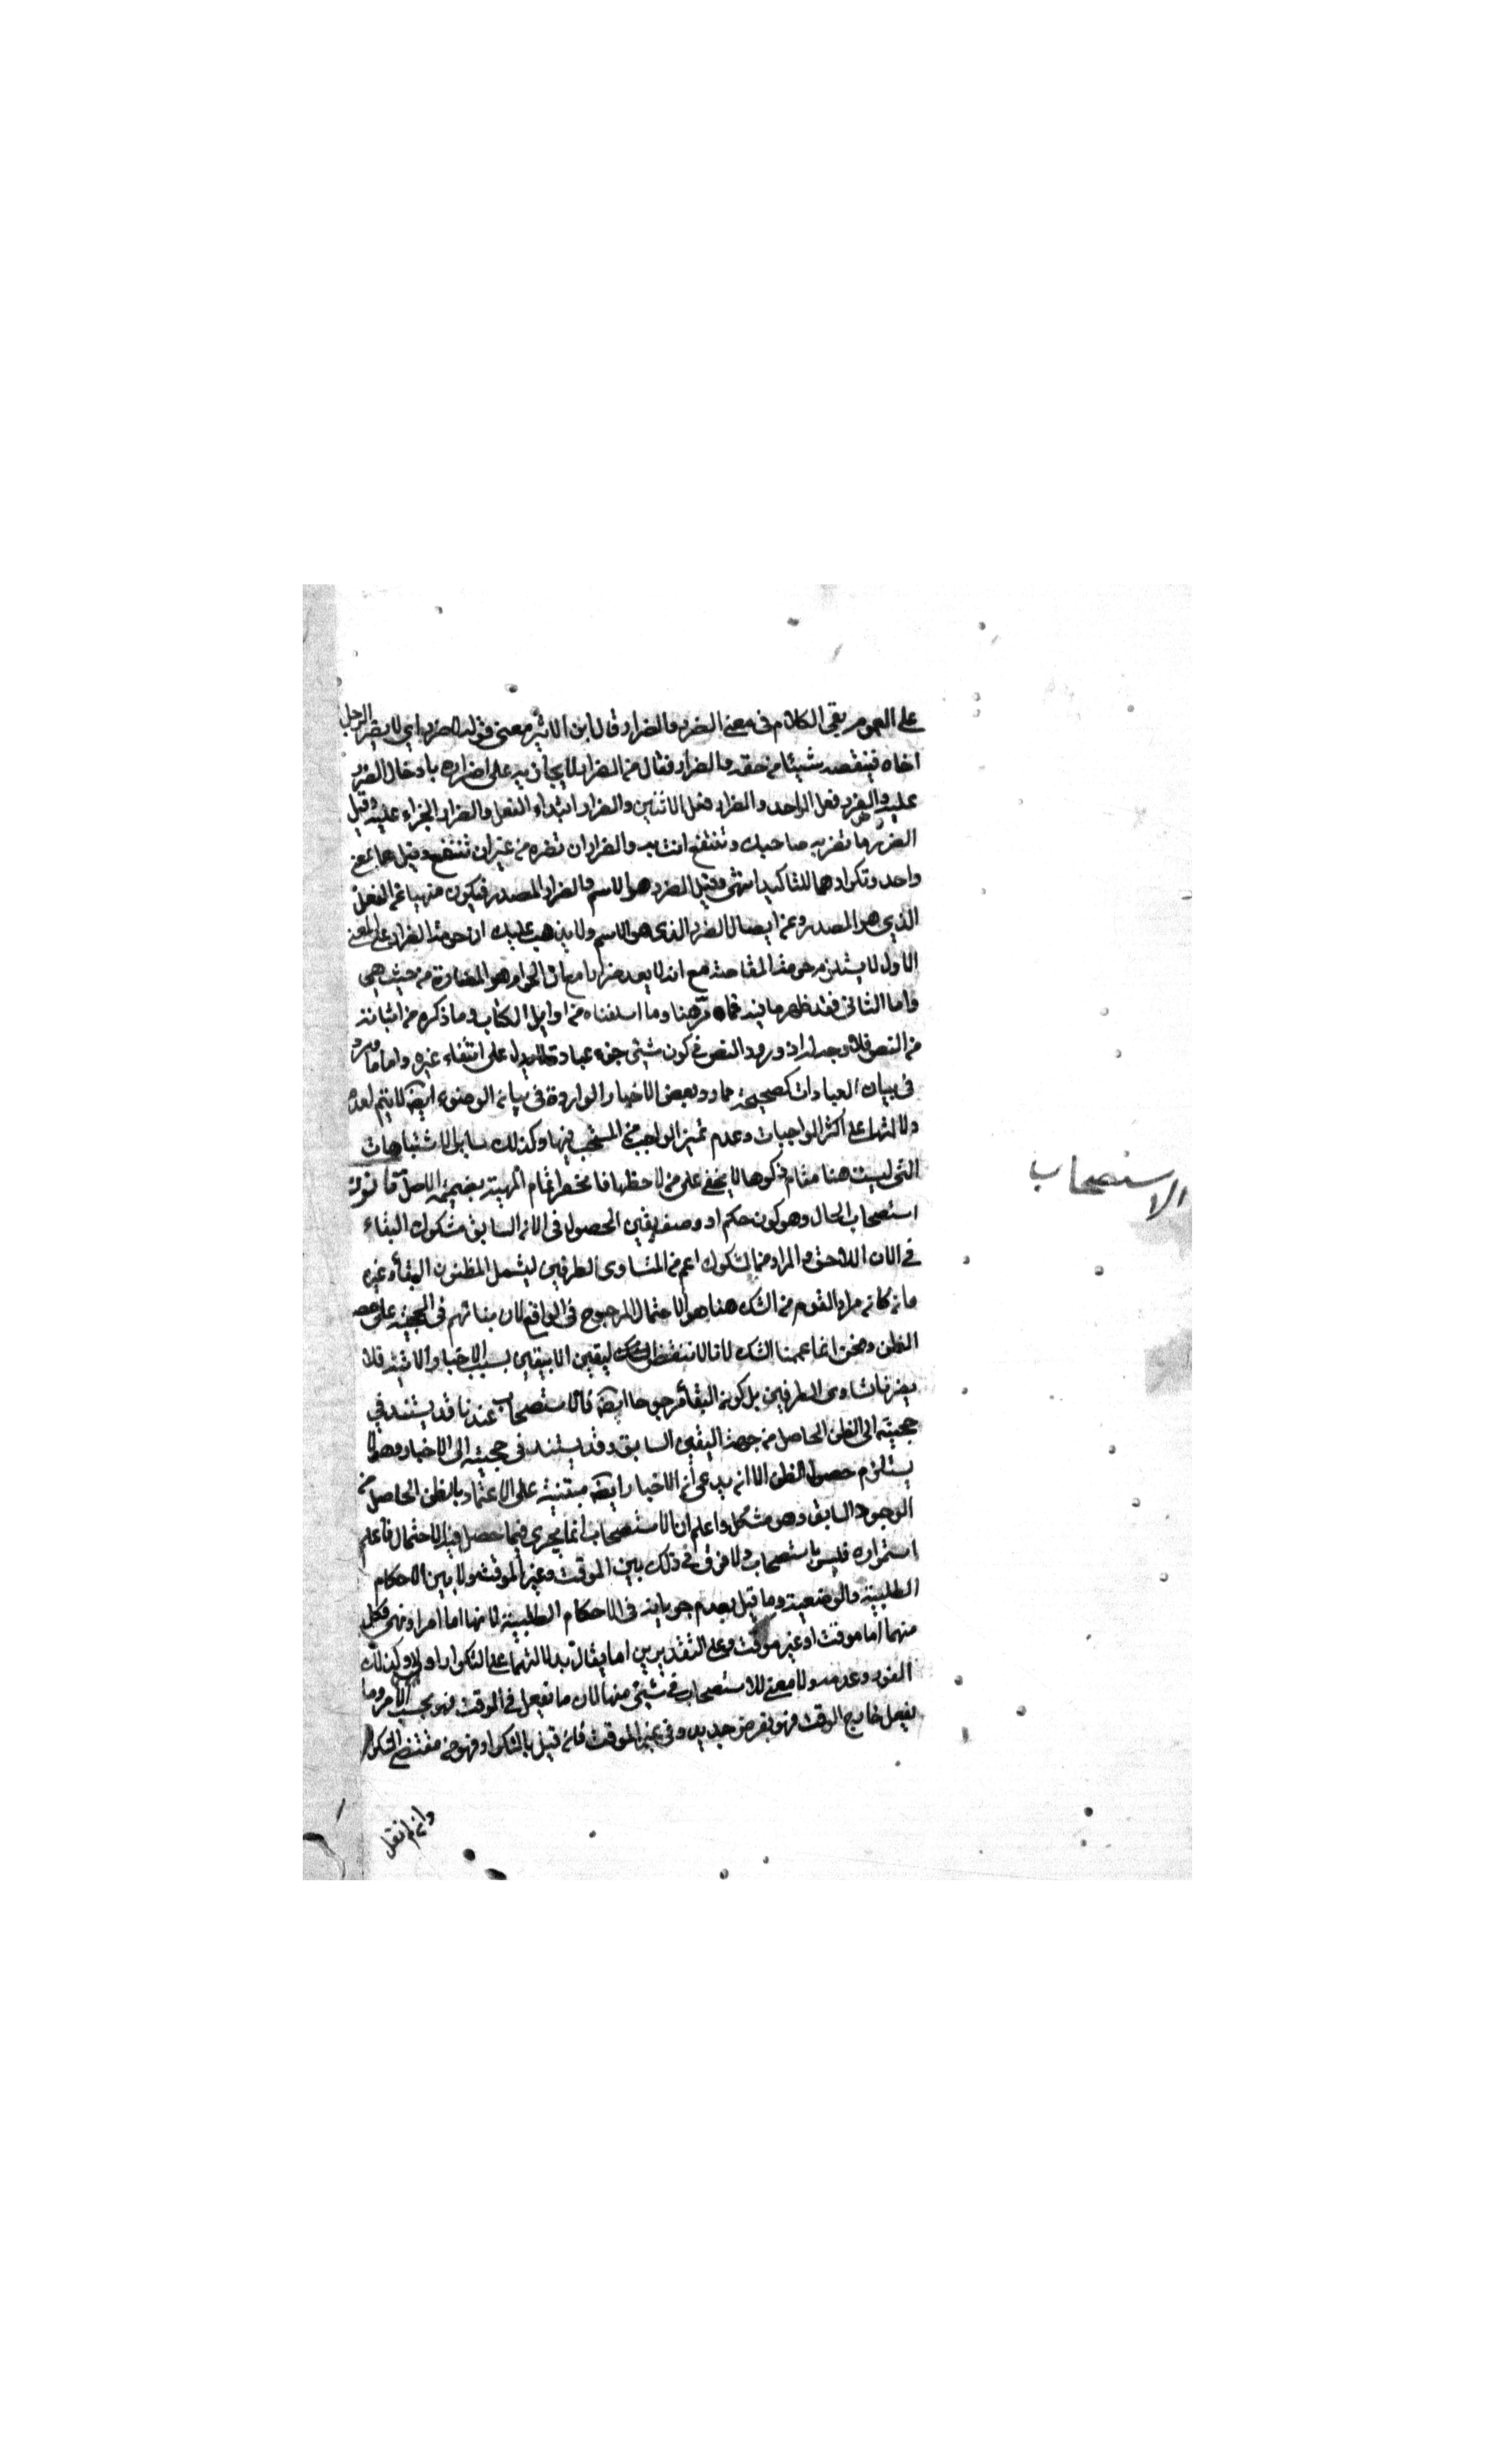 على العموم بقي الكلام في معنى الضرر والضرار قال ابن الاثير معنى قوله لا ضرر اي لا يضر الرجل
اخاه فينقصه شيئا من حقه والضرار فعال من الضر اي لا يجازيه على اضراره بادخال الضرر
عليه والضرر فعل الواحد والضرار فعل الاثنين والضرر ابتداء الفعل والضرار الجزاء عليه وقيل
الضرر ما تضر به صاحبك وتنتفع انت به والضرار ان تضره من غير ان تنتفع وقيل هما بمعنى
واحد وتكرارهما للتاكيد انتهى وقيل الضرر هو الاسم والضرار المصدر فيكون منهيا عن الفعل
الذي هو المصدر وعن ايصال الضرر الذي هو الاسم ولا يذهب عليك ان حرمة الضرار على المعنى
الاول لا يستلزم حرمة المقاصة مع انه لا يعد ضرارا مع ان الحرام هو المضارة من حيث هي
واما الثاني فقد ظهر ما فيه مما هنا وما اسلفناه من اوايل الكتاب وما ذكره من اثباته
من النص فلا وجه له اذ ورود النص في كون شيئ جزء عبادة لا يدل على انتفاء غيره واما ما ورد
في بيان العبادات كصحيحة حماد وبعض الاخبار الواردة في بيان الوضوء ايضا لا يتم لعدم
دلالتها على اكثر الواجبات وعدم تميز الواجب من المستحب فيها وكذلك ساير الاشتباهات
التي ليست هنا مقام ذكرها لا يخفى على من لاحظها فانحصر اتمام المهية بضميمة الاصل قانون
استصحاب الحال وهو كون حكم او وصف يقيني الحصول في الان السابق مشكوك البقاء
في الان اللاحق والمراد من المشكوك اعم من المتساوى الطرفين ليشمل المظنون البقاء وغيره
وان كان مراد القوم من الشك هنا هو الاحتمال المرجوح في الواقع لان بنائهم في الحجية على حصول
الظن ونحن انما عممنا الشك لانا لا ننقض اليقين الا بيقين بسبب الاخبار الاتية فلا
يضرنا تساوى الطرفين بل كون البقاء مرجوحا ايضا فالاستصحاب عندنا قد يستند في
حجيته الى الظن الحاصل من جهة اليقين السابق وقد يستند في حجيته الى الاخبار وهو لا
يستلزم حصول الظن الا ان يدعى ان الاخبار ايضا مبتنية على الاعتماد بالظن الحاصل من
الوجود السابق وهو مشكل واعلم ان الاستصحاب انما يجرى فيما حصل فيه الاحتمال فاعلم
استمراره فليس باستصحاب ولا فرق في ذلك بين الموقت وغير الموقت ولا بين الاحكام
الطلبية والوضعية وما قيل بعدم جريانه في الاحكام الطلبية لانها اما امر او نهي وكل
منهما اما موقت او غير موقت وعلى التقديرين اما يقال بدلالتهما على التكرار او لا وكذلك
الفور وعدمه ولا معنى للاستصحاب في شيئ منها لان ما يفعل في الوقت فهو بحسب الامر وما
يفعل خارج الوقت فهو بفرض جديد وفي غير الموقت فان قيل بالتكرار فهو من مقتضى التكرار
وان لم نقل
الاستصحاب